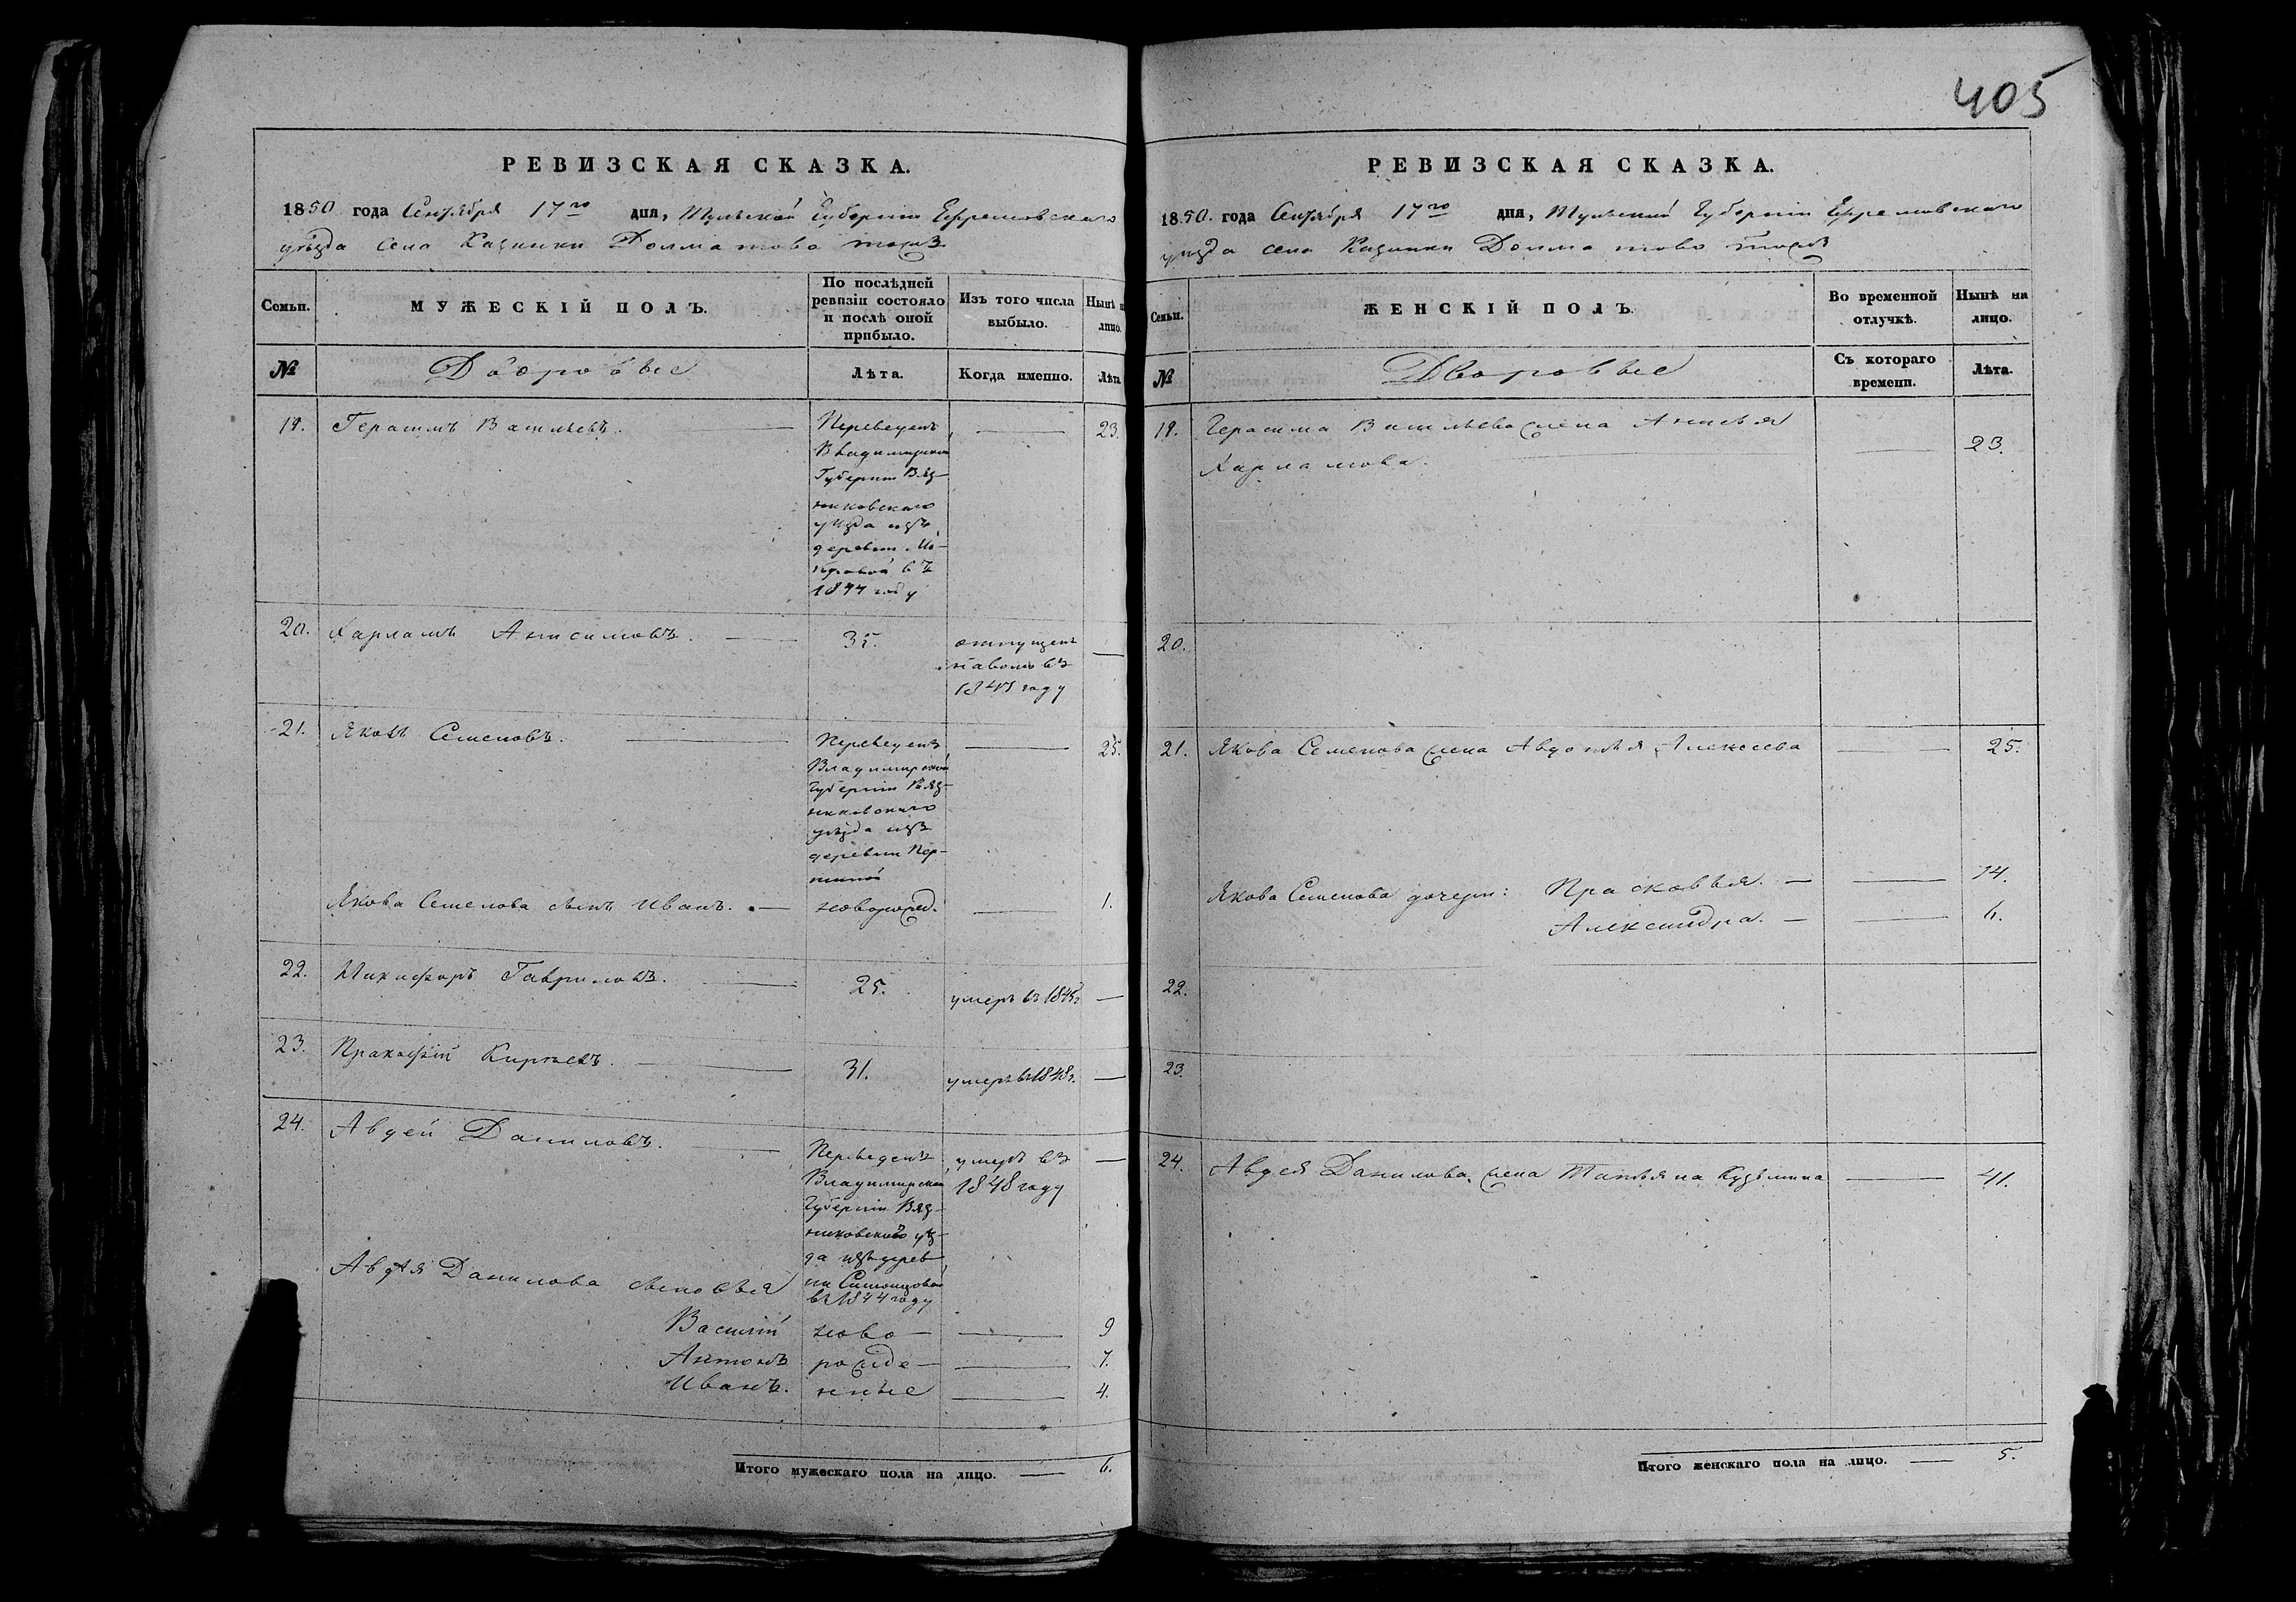 405
РЕВИЗСКАЯ СКАЗКА.
1850 года Сентября 17го дня, Тульской Губернии Ефремовскаго
уѣзда села Казинки Долматово тожъ
Семьи.
МУЖЕСКІЙ ПОЛЪ.
По послѣдней
ревизіи состояло
и послѣ оной
прибыло.
Изъ того числа
выбыло.
Нынѣ н
лицо.
№
Дворовые
Лѣта.
Когда именно.
Лѣта
19. Герасимъ Васильевъ. Переведенъ 23.
Владимирской
Губерніи Вяз-
никовскаго
уѣзда изъ
деревни
въ
1844 году
20. Харламъ Анисимовъ. 35. отпущенъ
на волю въ
году
21. Яковъ Семеновъ. Переведенъ 25.
Владимирской
Губерніи Вяз-
никовскаго
уѣзда изъ
деревни
Якова Семенова сынъ Иванъ. новорожд. 1.
22. Никифоръ Гавриловъ. 25. умеръ въ 1845г
23. Пракофій Кирѣевъ. 31. умеръ въ 1848г.
24. Авдей Даниловъ. Переведенъ умеръ въ
Владимирской 1848 году
Губерніи Вяз-
никовскаго уѣз-
да изъ дерев
ни
въ 1844 году
Авдѣя Данилова сыновья
Василій ново 9
Антонъ рожде 7.
Иванъ. нные 4.
Итого мужескаго пола на лицо. 6.
РЕВИЗСКАЯ СКАЗКА.
1850. года Сентября 17го дня, Тульской Губерніи Ефремовскаго
уѣзда села Казинки Долматово тожъ
Семьи.
ЖЕНСКІЙ ПОЛЪ.
Во временной
отлучкѣ.
Нынѣ на
лицо.
№
Дворовые
Съ котораго
времени.
Лѣта.
19. Герасима Васильева жена Анисья
Харламова. 23.
20.
21. Якова Семенова жена Авдотья Алексеева 25.
Якова Семенова дочери: Прасковья. 14.
Александра. 6.
22.
23.
24. Авдея Данилова жена Татьяна Кузьмина 41.
Итого женскаго пола на лицо. 5.